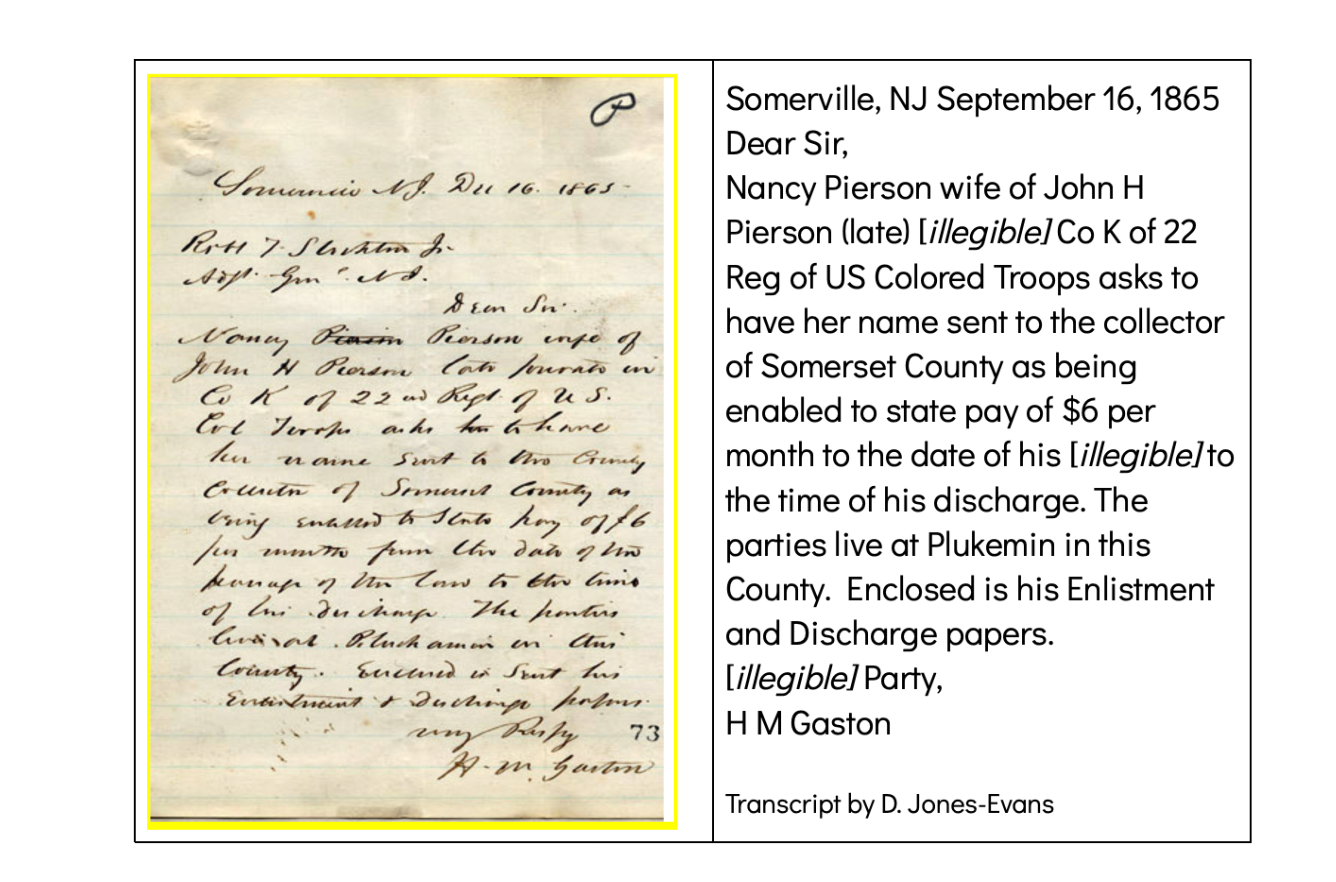 P
Somerville NJ. Dec 16. 1865-
Robt F. Stockton Jr.
Adjt. Genl. N.J.
Dear Sir.
Nancy Pierson Pierson wife of
John H Pierson late private in
Co K of 22nd Regt. of U.S.
Col Troops asks to have
her name sent to the County
Collector of Somerset County as
being entitled to State pay of $6
per month from the date of the
passage of the law to the time
of his discharge. The parties
live at Pluckamin in this
County. Enclosed is sent his
Enlistment & discharge papers.
very Respy
73
H. M. Gaston
Somerville, NJ September 16, 1865
Dear Sir,
Nancy Pierson wife of John H
Pierson (late) [illegible] Co K of 22
Reg of US Colored Troops asks to
have her name sent to the collector
of Somerset County as being
enabled to state pay of $6 per
month to the date of his [illegible] to
the time of his discharge. The
parties live at Plukemin in this
County.  Enclosed is his Enlistment
and Discharge papers.
[illegible] Party,
H M Gaston
Transcript by D. Jones-Evans